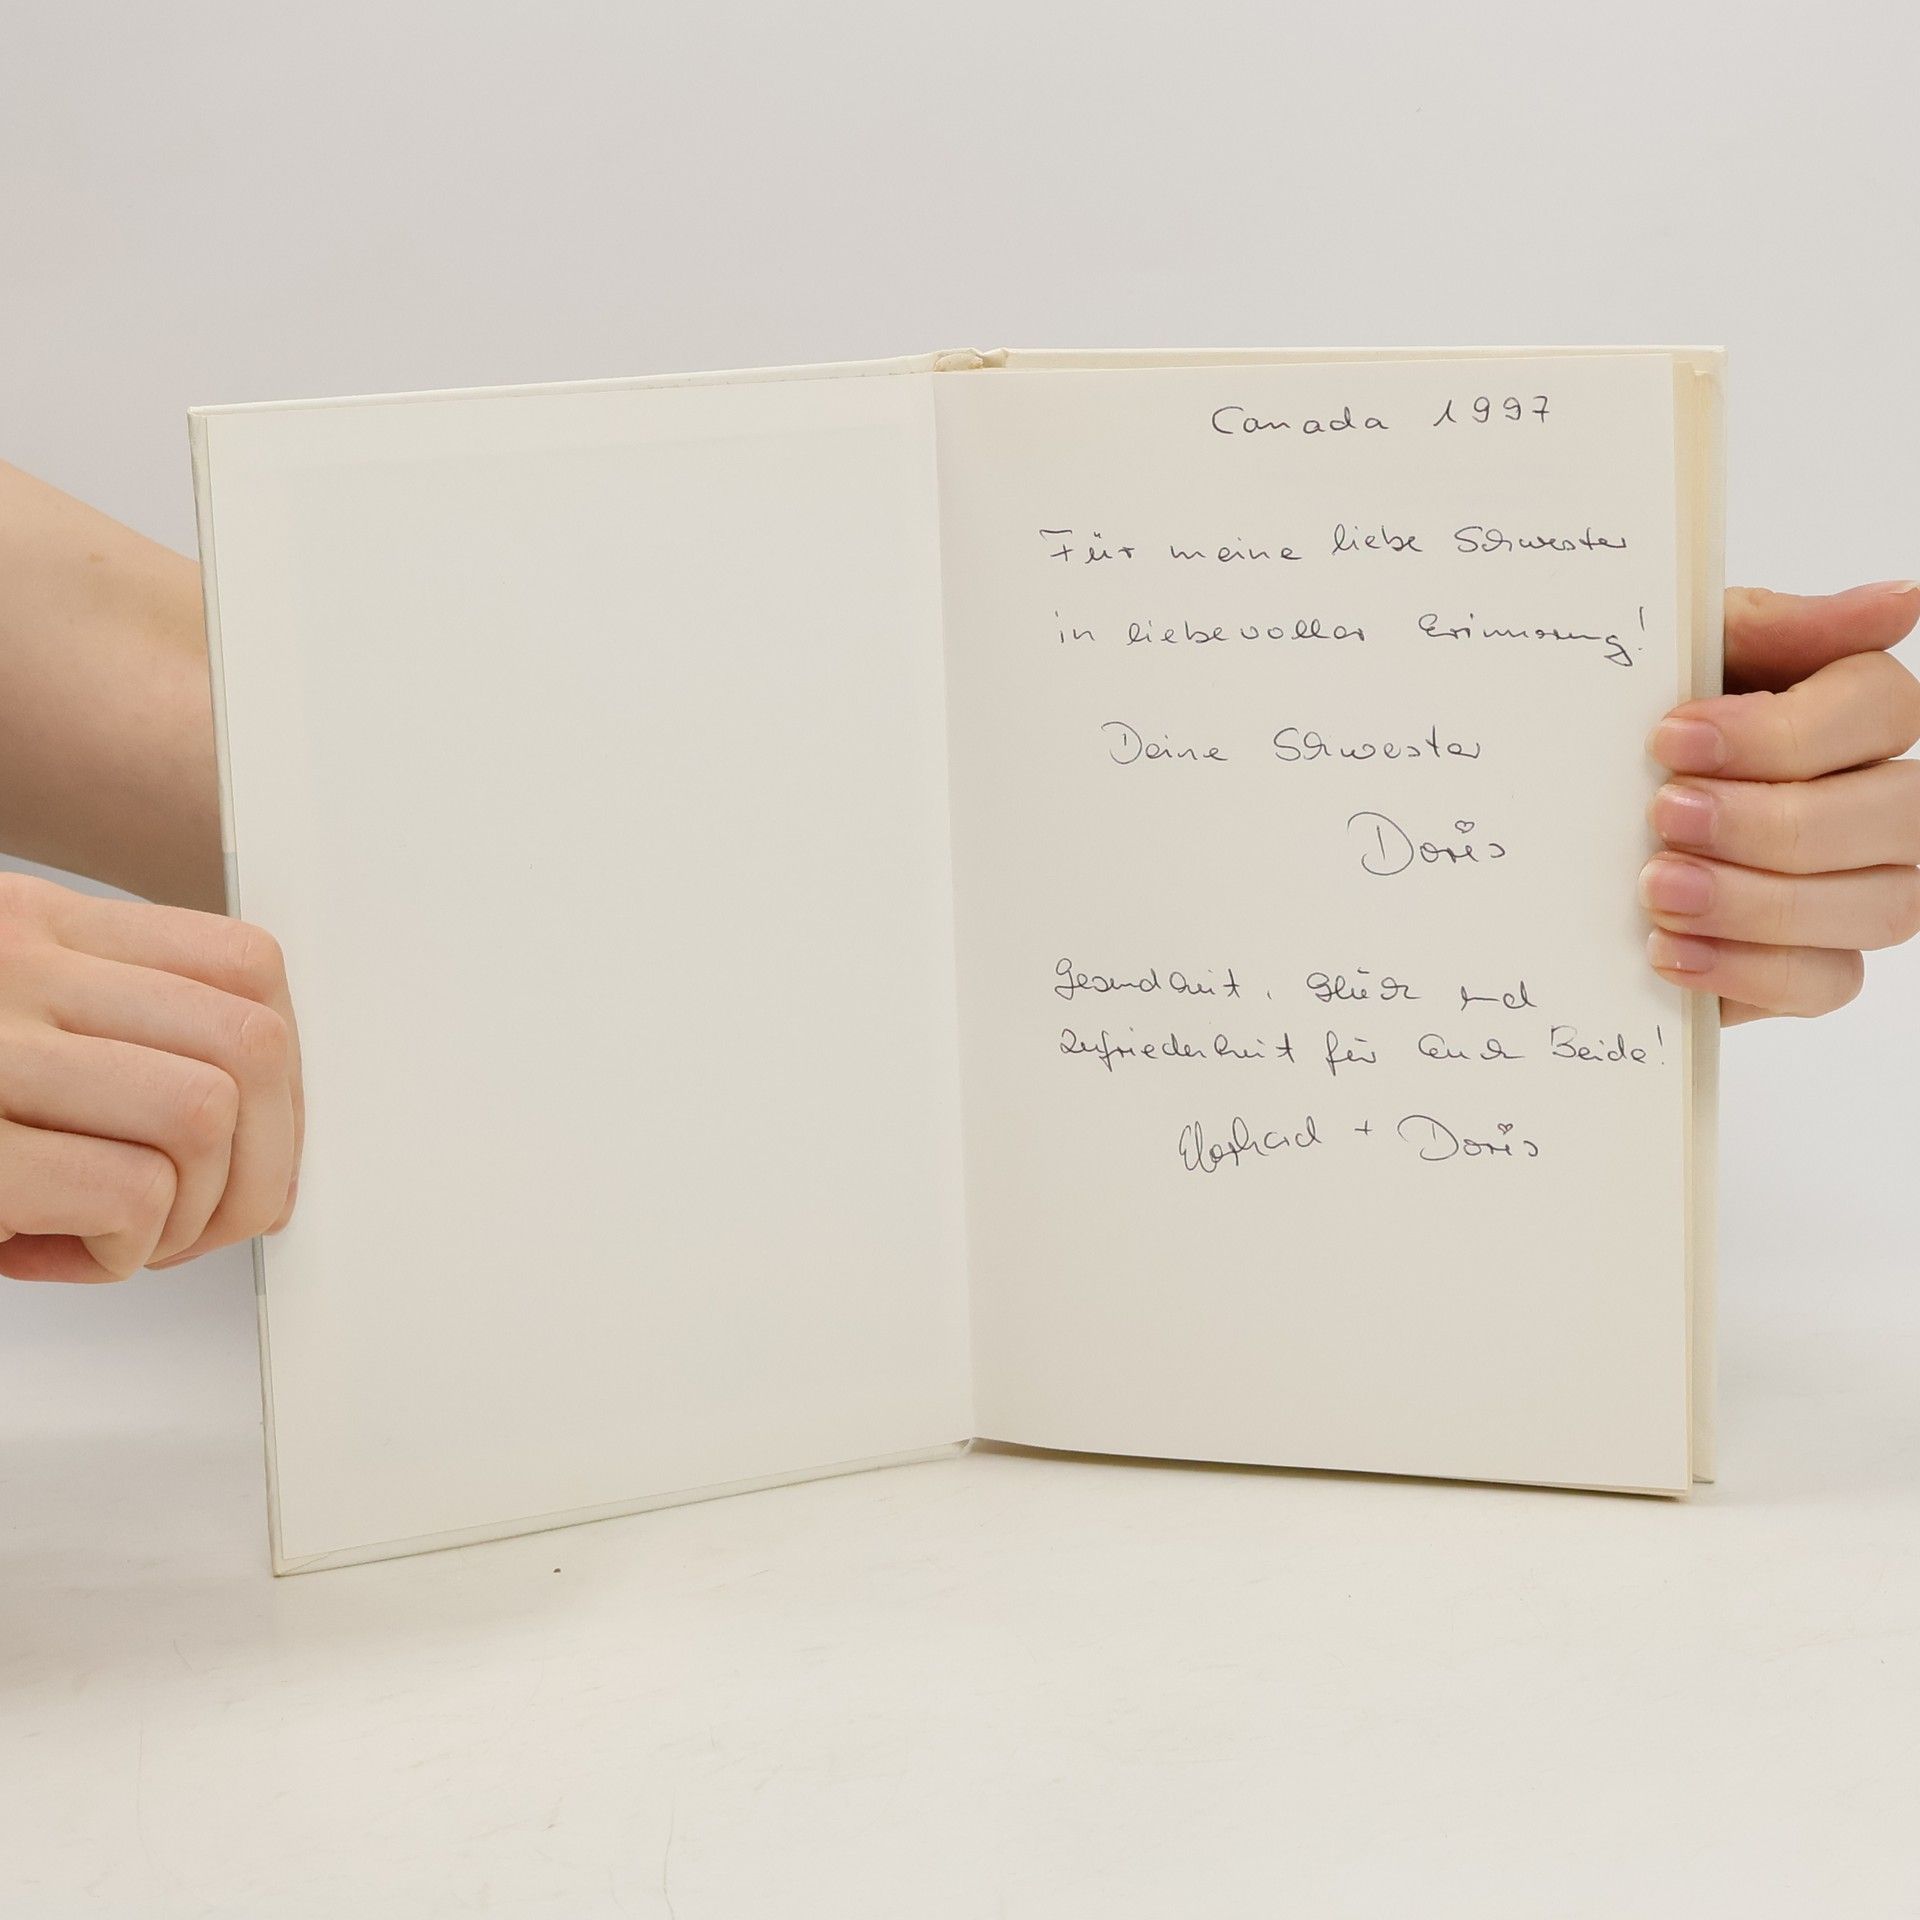 Canada 1997
Für meine liebe Schwester
in liebevoller Erinnerung!
Deine Schwester
Doris
Gesundheit, Glück und
Zufriedenheit für Euch Beide!
Eberhard + Doris